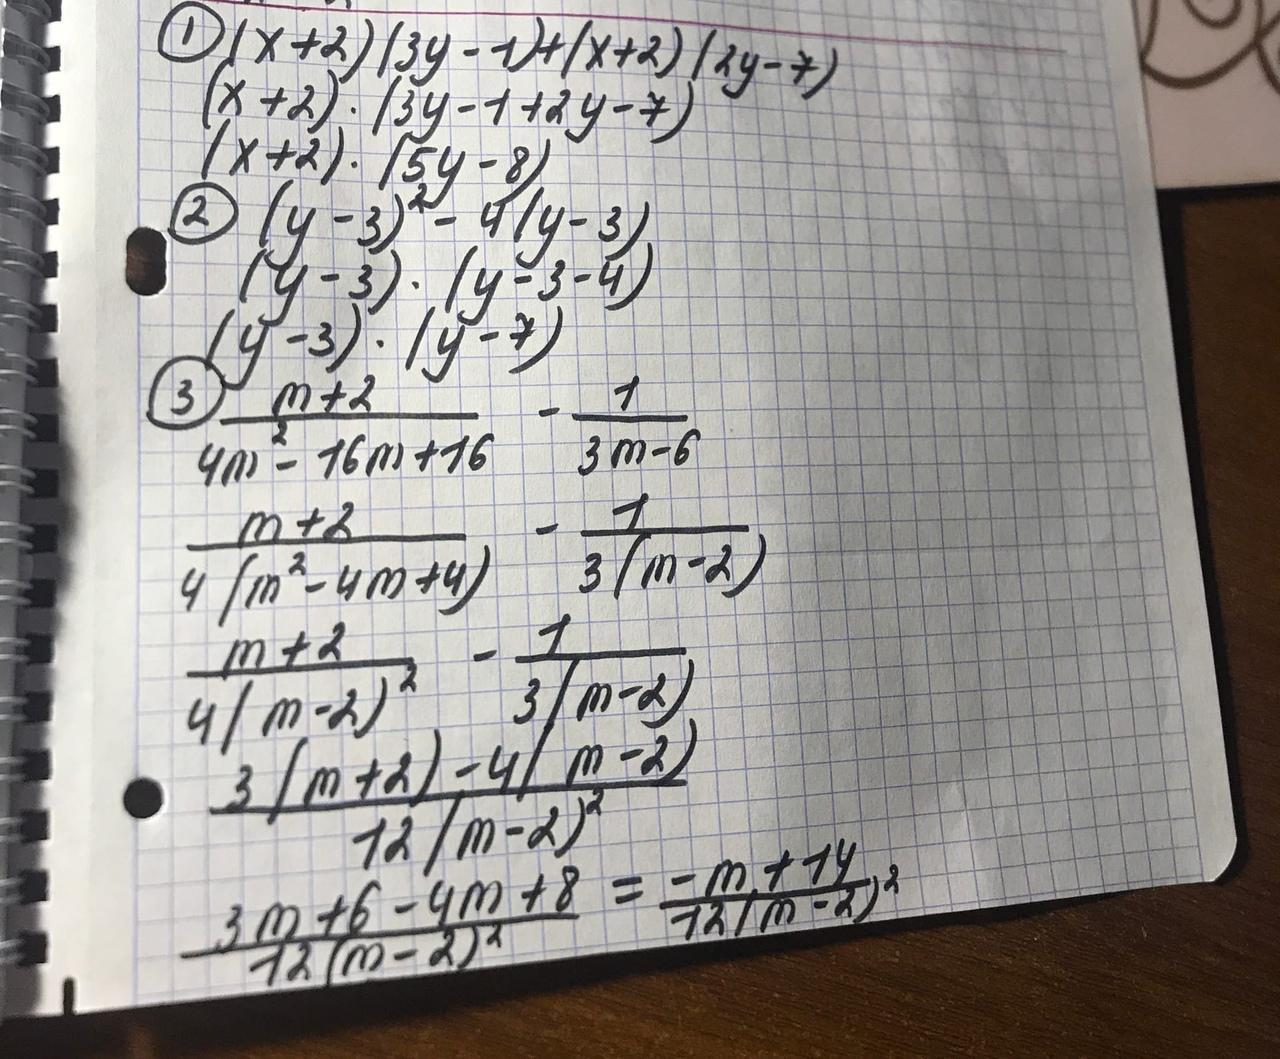 ① (x+2)(3y-1)+(x+2)(2y-7)
(x+2)·(3y-1+2y-7)
(x+2)·(5y-8)
② (y-3)²-4(y-3)
(y-3)·(y-3-4)
(y-3)·(y-7)
③ m+2 / 4m²-16m+16 - 1 / 3m-6
m+2 / 4(m²-4m+4) - 1 / 3(m-2)
m+2 / 4(m-2)² - 1 / 3(m-2)
3(m+2)-4(m-2) / 12(m-2)²
3m+6-4m+8 / 12(m-2)² = -m+14 / 12(m-2)²